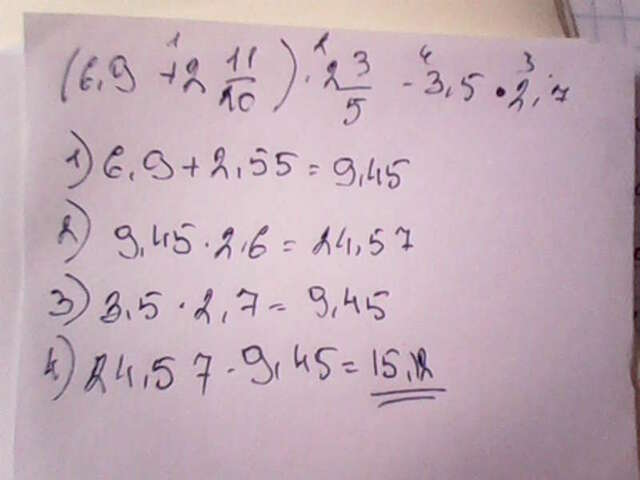 (6,9 + 2 11/20) · 2 3/5 - 3,5 · 2,7
1) 6,9 + 2,55 = 9,45
2) 9,45 · 2,6 = 24,57
3) 3,5 · 2,7 = 9,45
4) 24,57 - 9,45 = 15,12